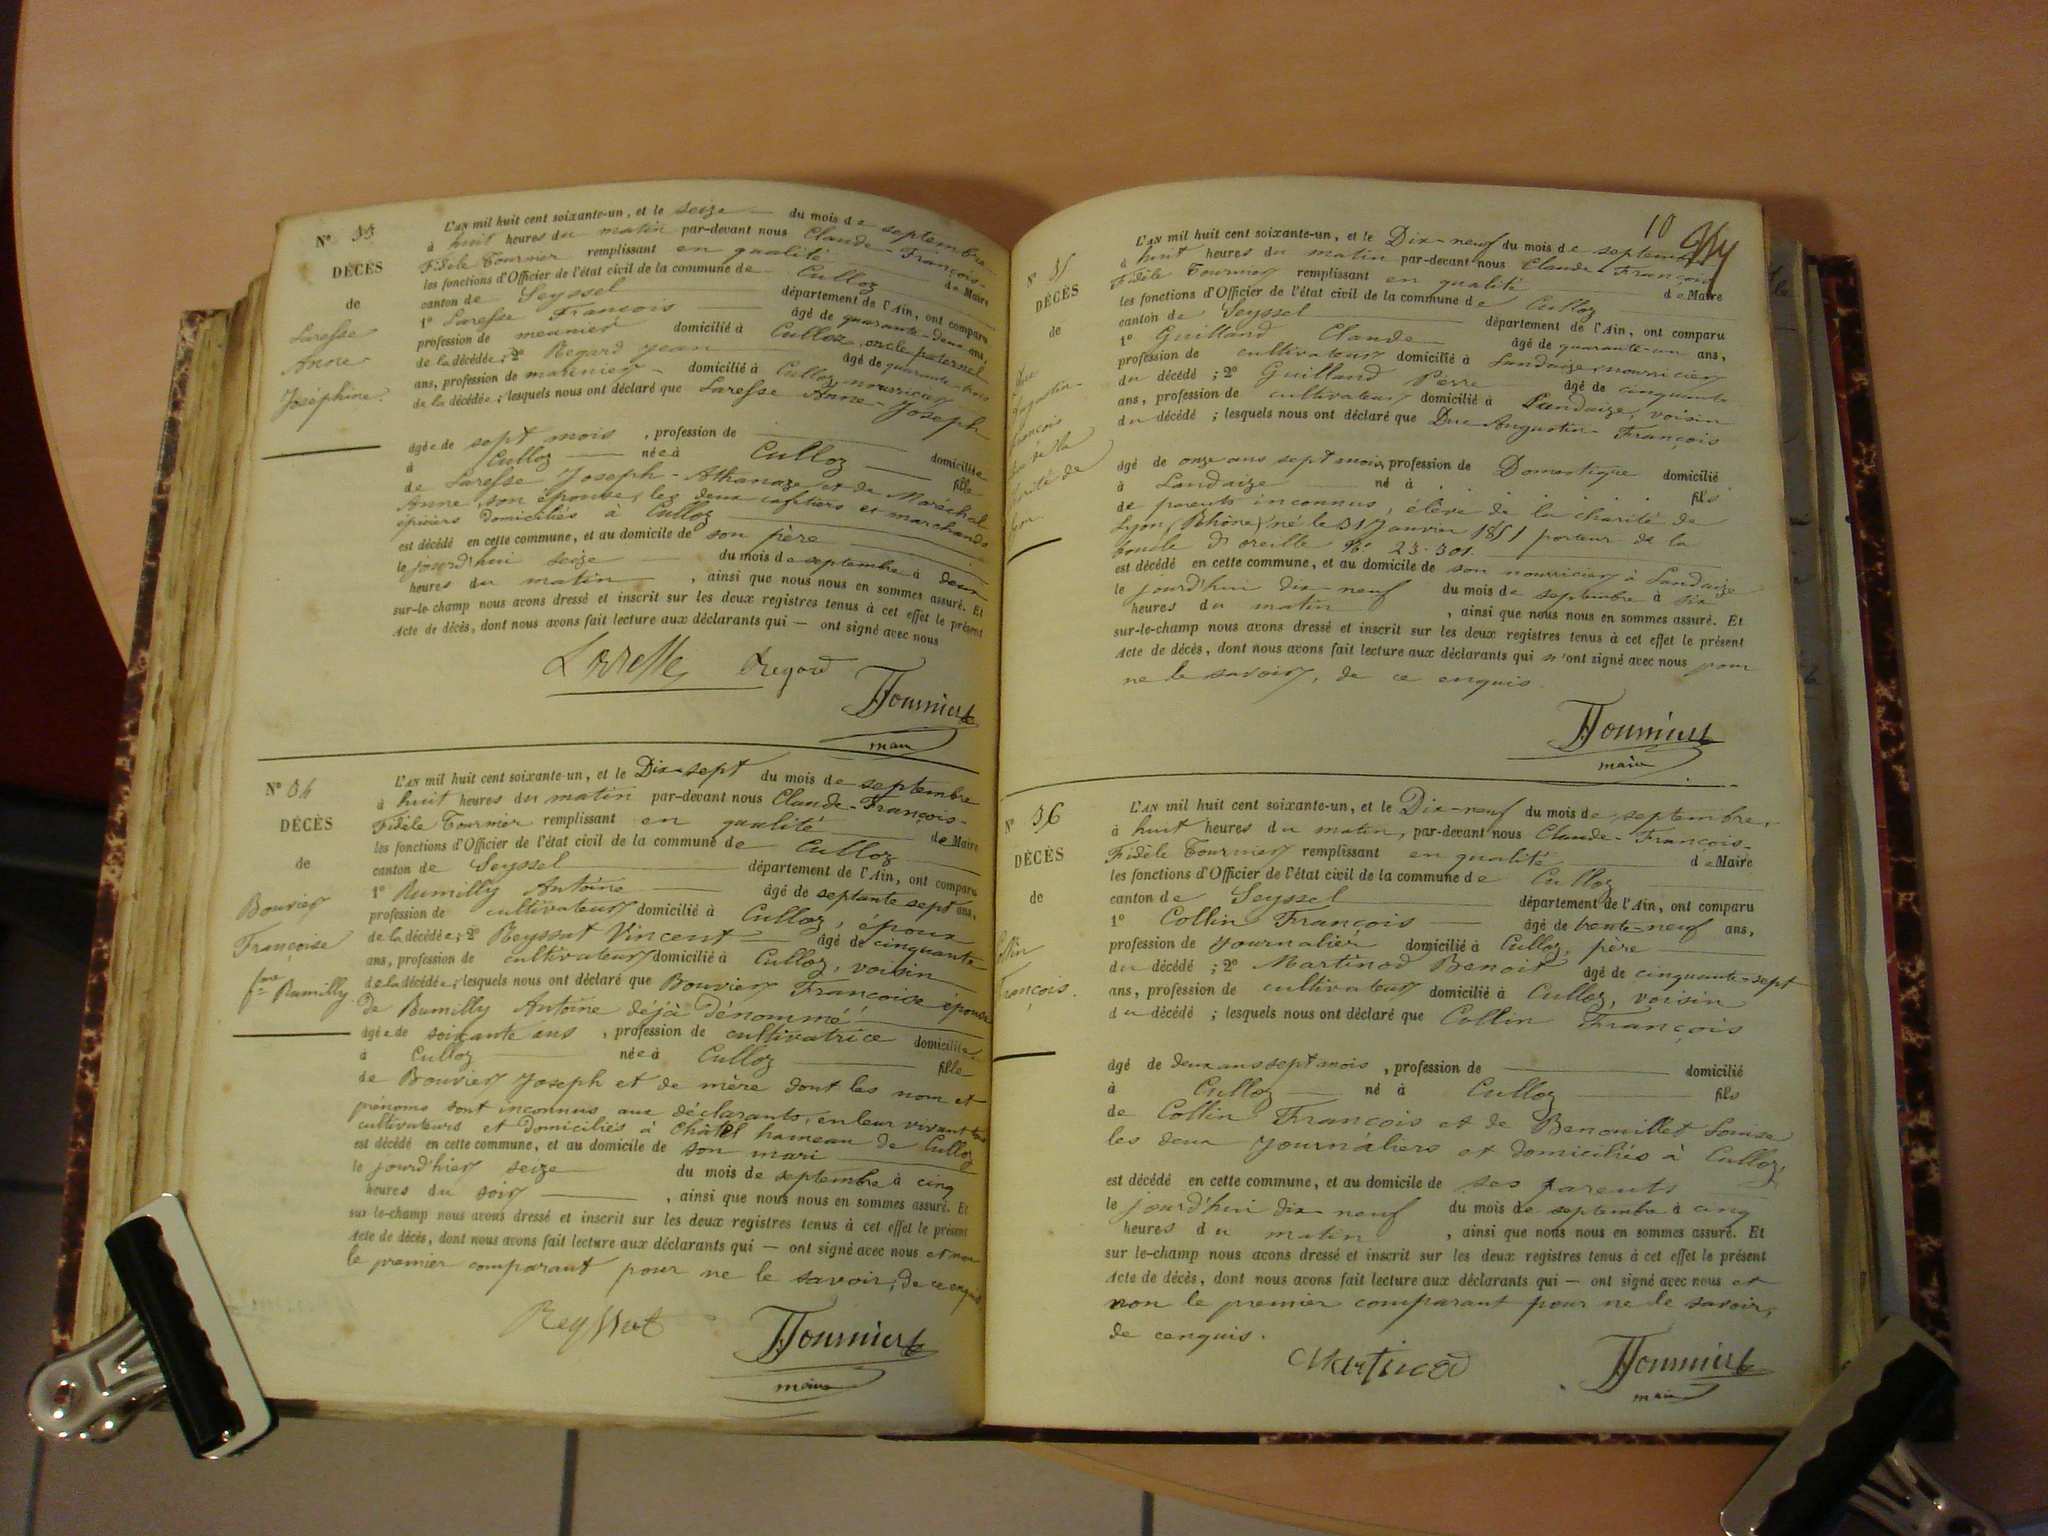 N° 33
DÉCÈS
de
Laresse
Anne
Joséphine.
L'AN mil huit cent soixante-un, et le seize du mois de septembre
à huit heures du matin par-devant nous Claude-François-
Fidèle Tournier remplissant en qualité de Maire
les fonctions d'Officier de l'état civil de la commune de Culloz
canton de Seyssel département de l'Ain, ont comparu
1° Laresse François âgé de quarante-deux ans,
profession de meunier domicilié à Culloz, oncle paternel
de la décédée; 2° Regard Jean âgé de quarante-trois
ans, profession de marinier domicilié à Culloz, nourricier
de la décédée; lesquels nous ont déclaré que Laresse Anne-Joseph
âgée de sept mois, profession de domiciliée
à Culloz née à Culloz fille
de Laresse Joseph-Athanaze et de Maréchal
Anne, son épouse, les deux cafetiers et marchands
épiciers domiciliés à Culloz
est décédé en cette commune, et au domicile de son père
le jourd'hui seize du mois de septembre à deux
heures du matin, ainsi que nous nous en sommes assuré. Et
sur-le-champ nous avons dressé et inscrit sur les deux registres tenus à cet effet le présent
Acte de décès, dont nous avons fait lecture aux déclarants qui — ont signé avec nous
Laresse Regard
Tournier
maire
N° 34
DÉCÈS
de
Bouvier
Françoise
fme Rumilly
L'AN mil huit cent soixante-un, et le Dix-sept du mois de septembre
à huit heures du matin par-devant nous Claude-François-
Fidèle Tournier remplissant en qualité de Maire
les fonctions d'Officier de l'état civil de la commune de Culloz
canton de Seyssel département de l'Ain, ont comparu
1° Rumilly Antoine âgé de septante sept ans,
profession de cultivateur domicilié à Culloz, époux
de la décédée; 2° Reyssut Vincent âgé de cinquante
ans, profession de cultivateur domicilié à Culloz, voisin
de la décédée; lesquels nous ont déclaré que Bouvier Françoise épouse
de Rumilly Antoine déjà dénommé
âgée de soixante ans, profession de cultivatrice domiciliée
à Culloz née à Culloz fille
de Bouvier Joseph et de mère dont les nom et
prénoms sont inconnus aux déclarants, en leur vivant
cultivateurs et domiciliés à Châtel hameau de Culloz
est décédé en cette commune, et au domicile de son mari
le jourd'hier seize du mois de septembre à cinq
heures du soir, ainsi que nous nous en sommes assuré. Et
sur-le-champ nous avons dressé et inscrit sur les deux registres tenus à cet effet le présent
Acte de décès, dont nous avons fait lecture aux déclarants qui — ont signé avec nous et non
le premier comparant pour ne le savoir, de ce enquis
Reyssut
Tournier
maire
10
N° 35
DÉCÈS
de
Duc
Augustin
François
de la
charité de
Lyon
L'AN mil huit cent soixante-un, et le Dix-neuf du mois de septembre
à huit heures du matin par-devant nous Claude-François
Fidèle Tournier remplissant en qualité de Maire
les fonctions d'Officier de l'état civil de la commune de Culloz
canton de Seyssel département de l'Ain, ont comparu
1° Guilland Claude âgé de quarante-un ans,
profession de cultivateur domicilié à Landaize, nourricier
du décédé; 2° Guilland Pierre âgé de cinquante
ans, profession de cultivateur domicilié à Landaize, voisin
du décédé; lesquels nous ont déclaré que Duc Augustin-François
âgé de onze ans sept mois, profession de Domestique domicilié
à Landaize né à fils
de parents inconnus, élève de la charité de
Lyon (Rhône) né le 31 Janvier 1851 porteur de la
boucle d'oreille N° 23.301.
est décédé en cette commune, et au domicile de son nourricier à Landaize
le jourd'hui dix neuf du mois de septembre à six
heures du matin, ainsi que nous nous en sommes assuré. Et
sur-le-champ nous avons dressé et inscrit sur les deux registres tenus à cet effet le présent
Acte de décès, dont nous avons fait lecture aux déclarants qui n'ont signé avec nous pour
ne le savoir, de ce enquis.
Tournier
maire
N° 36
DÉCÈS
de
Collin
François.
L'AN mil huit cent soixante-un, et le Dix-neuf du mois de septembre,
à huit heures du matin, par-devant nous Claude-François-
Fidèle Tournier remplissant en qualité de Maire
les fonctions d'Officier de l'état civil de la commune de Culloz
canton de Seyssel département de l'Ain, ont comparu
1° Collin François âgé de trente-neuf ans,
profession de journalier domicilié à Culloz, père
du décédé; 2° Martinod Benoit âgé de cinquante-sept
ans, profession de cultivateur domicilié à Culloz, voisin
du décédé; lesquels nous ont déclaré que Collin François
âgé de deux ans sept mois, profession de domicilié
à Culloz né à Culloz fils
de Collin François et de Benouillet Louise
les deux journaliers et domiciliés à Culloz,
est décédé en cette commune, et au domicile de ses parents
le jourd'hui dix neuf du mois de septembre à cinq
heures du matin, ainsi que nous nous en sommes assuré. Et
sur le-champ nous avons dressé et inscrit sur les deux registres tenus à cet effet le présent
Acte de décès, dont nous avons fait lecture aux déclarants qui — ont signé avec nous et
non le premier comparant pour ne le savoir,
de ce enquis.
Martinod
Tournier
maire